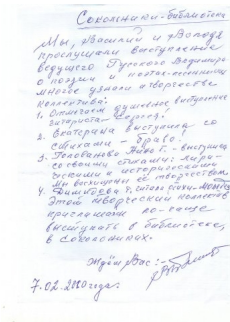 Сокольники-библиотека
Мы, Василий и Володя
прослушали выступление
ведущего Русского Владимира
о поэзии и поэтах-песенниках
многое узнали о творчестве
коллектива:
1. Отмечаем душевное выступление
гитариста - Сергея.
2. Екатерина выступила со
стихами - Браво!
3. Голованова Нина Г. - выступила
со своими стихами: лири-
ческими и историческими
Мы восхищены её творчеством
4. читала стихи
Этот творческий коллектив
приглашаем по-чаще
выступать в библиотеке,
в Сокольниках.
Ждём Вас: -
7.02.2020 года.